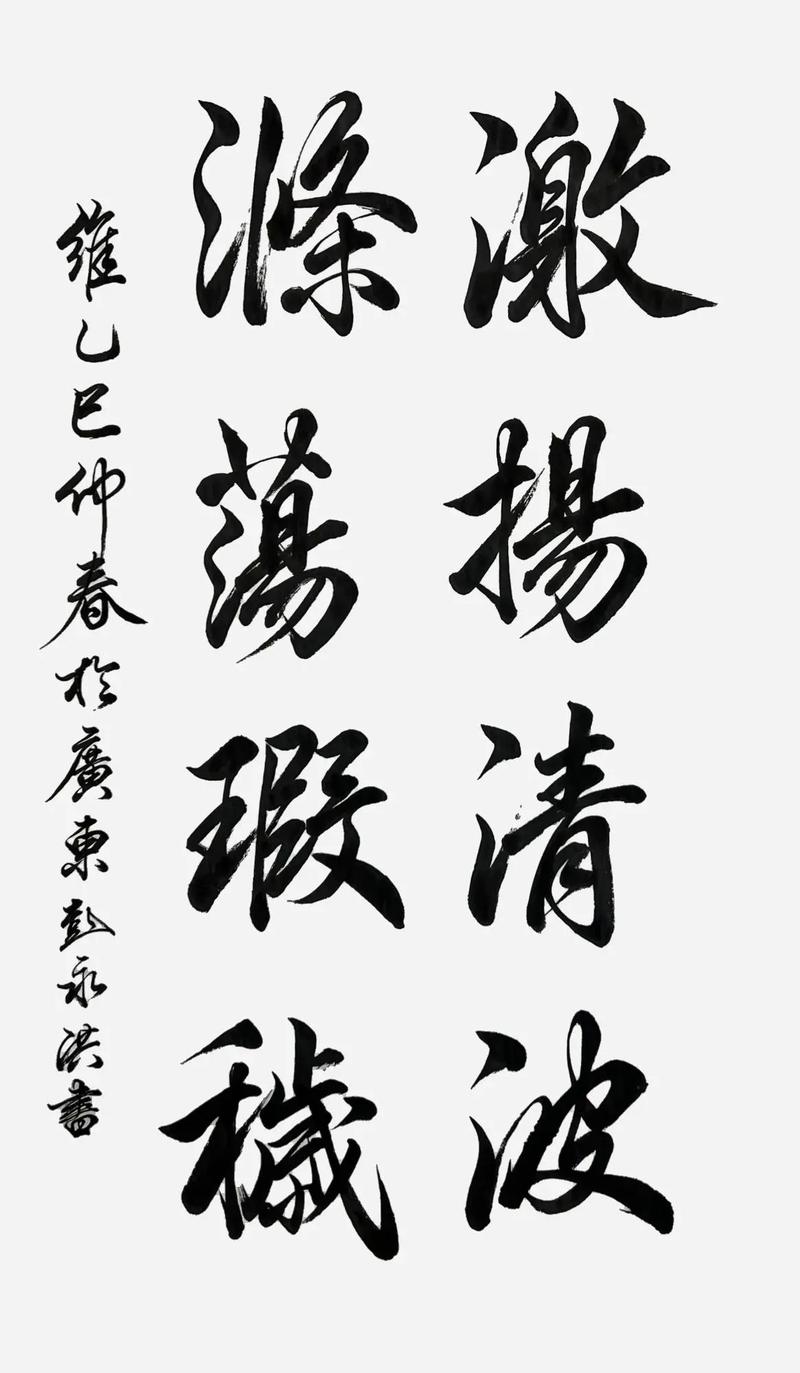 激揚清波
滌蕩瑕穢
維乙巳仲春於廣東彭永洪書